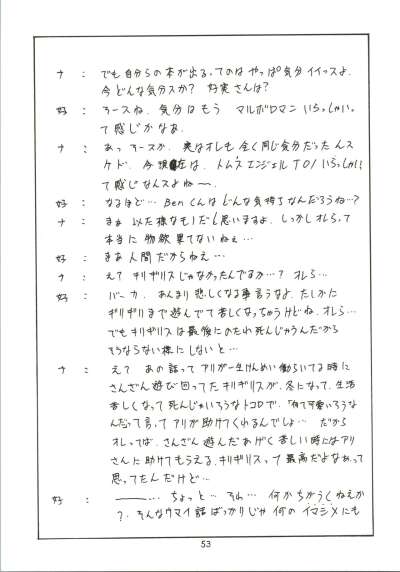 ナ : でも自分らの本が出るってのはやっぱ気分イイッスよ.
今どんな気分スか? 好実さんは?
好 : そースね. 気分はもう マルボロマンいらっしゃいっ
て感じかなぁ.
ナ : あっ そースか. 実はオレも全く同じ気分だったんス
ケド、今現在は、トムスエンジェルTO1いらっしゃいっ
て感じなんスよねー.
好 : なるほど… Benくんはどんな気持ちなんだろうね…?
ナ : まぁ 似た様なモノだと思いますよ. しっかしオレらって
本当に 物欲 果てないねぇ…
好 : まぁ人間だからねぇ…
ナ : え? キリギリスじゃなかったんですか…? オレら…
好 : バーカ. あんまり 悲しくなる事言うなよ. たしかに
ギリギリまで遊んでて苦しくなっちゃうけどね. オレら…
でもキリギリスは最後にのたれ死んじゃうんだから
そうならない様にしないと…
ナ : え? あの話ってアリが一生けんめい働らいてる時に
さんざん遊び回ってたキリギリスが、冬になって、生活
苦しくなって死んじゃいそうなトコロで、「何て可愛いそうな
んだ」って言ってアリが助けてくれるんでしょ… だから
オレってば、さんざん遊んだあげく苦しい時にはアリ
さんに助けてもらえる、キリギリスって最高だよなぁって
思ってたんだけど…
好 : ———… ちょっと… それ… 何かちがうくねえか
?. そんなウマイ話ばっかりじゃ何のイマシメにも
53